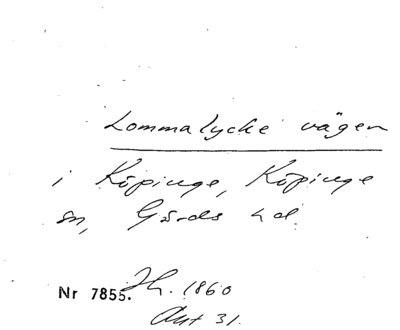 Lommalycke vägen
i Köpinge, Köpinge
sn, Gärds hd.
Nr 7855. Jh. 1860
Akt 31.